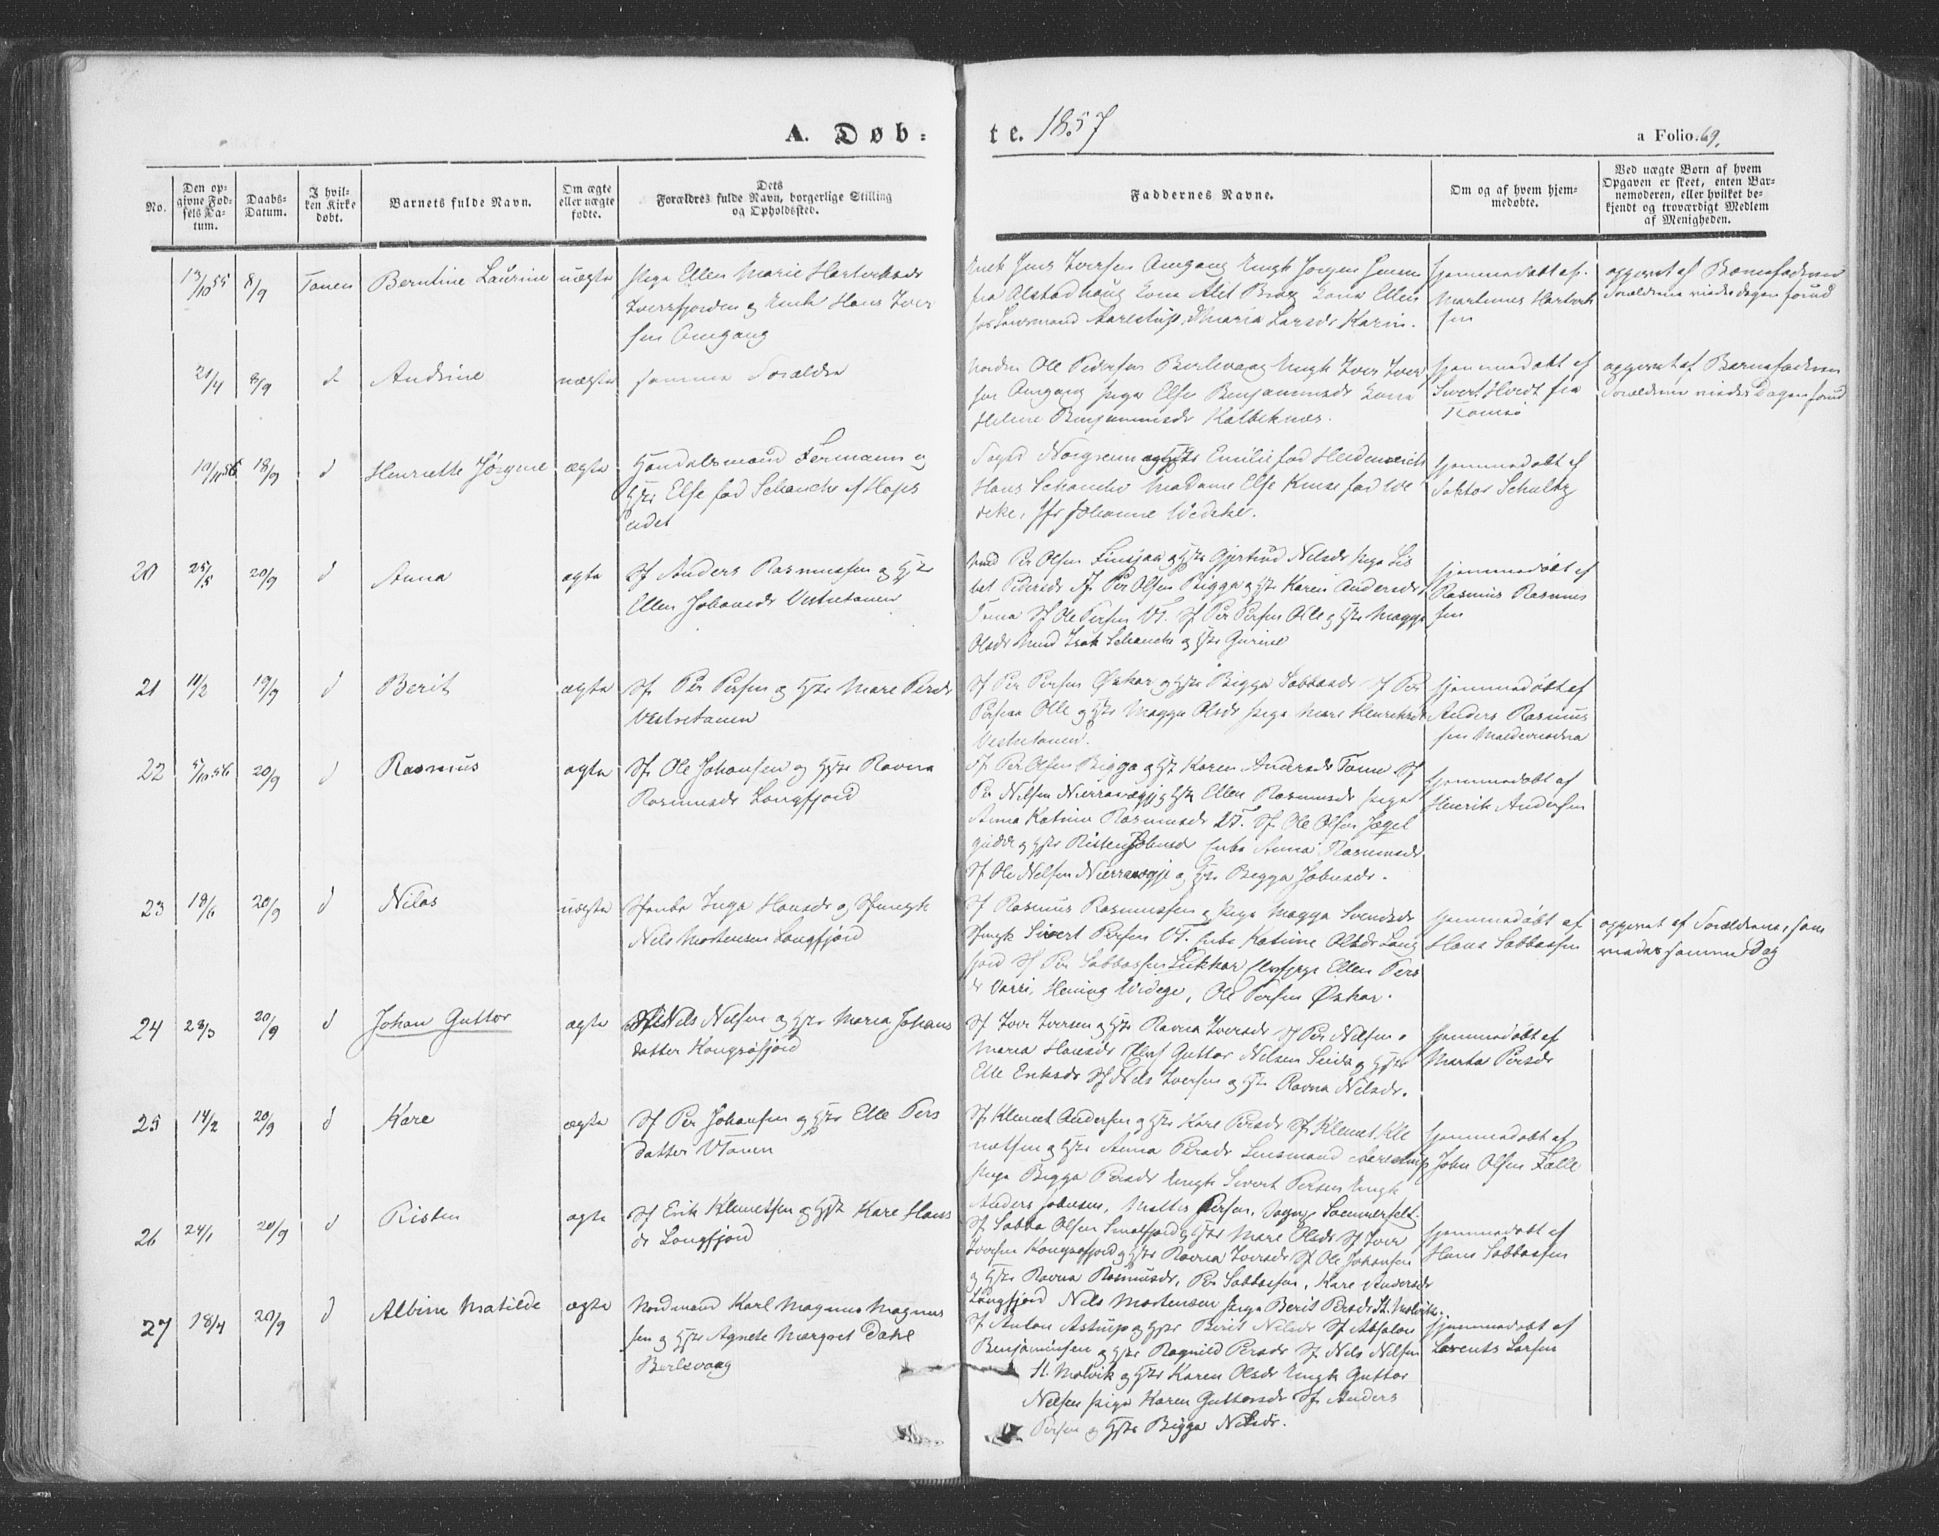 A. Døb-
te. 1857
a Folio. 69.
No.
Den op-
givne Fød-
sels Da-
tum.
Daabs-
Datum.
I hvil-
ken Kirke
døbt.
Barnets fulde Navn.
Om ægte
eller uægte
fødte.
Dets
Forældres fulde Navn, borgerlige Stilling
og Opholdssted.
Faddernes Navne.
Om og af hvem hjem-
medøbte.
Ved uægte Børn af hvem
Opgaven er skeet, enten Bar-
nemoderen, eller hvilket be-
kjendt og troværdigt Medlem
af Menigheden.
13/10 55 8/9 Tanen Berntine Laurine uægte
Pige Ellen Marie
og Ungk Hans Iver
sen Omgang
Ungk Jens Iversen Omgang Ungk Jørgen Jensen
fra Alstadhoug Kona Alet Kona Ellen
Lensmand Aarestrup, Maria Larsdr
hjemmedøbt af
Martinus Hartvik
sen
opgivet af Barnefaderen
Forældrene viedes dagen forud
21/4 8/9 d Andrine uægte samme Forældre
Ole Pedersen Berlevaag Ungk Iver Iver
sen Omgang Pige Else Benjaminsdr Kona
Helene Benjaminsdr
hjemmedøbt af
Sivert Hvedt fra
Tromsø
opgivet af Barnefaderen
Forældrene viedes Dagen forud
10/11 56 18/9 d Henriette Jørgine ægte
Handelsmand Fermann og
Hst Else fød Schanche af Hops
eidet
Foged Norgreen og Hst Emilie fød
Hans Schanche Madame Else Kruse fød We
deke, Jfr Johanne Wedeke.
hjemmedøbt af
Doktor Schultz
20 25/5 20/9 d Anna ægte
Sf Anders Rasmussen og Hst
Ellen Johansdr Vestretanen
Per Olsen og Hst Gjertrud Nilsdr Pige Lis
bet Pedersdr Sf Per Olsen Bigga og Hst Karen Andersdr
Tana Sf Ole Persen VT. Sf Per Persen Olle og Hst Magga
Olsdr Isak Schanche og Hst Gurine
hjemmedøbt af
Rasmus Rasmus
sen
21 11/2 19/9 d Berit ægte
Sf Per Persen og Hst Mare Persdr
Vestretanen
Sf Per Persen Øskar og Hst Bigga Sabbasdr Sf Per
Persen Olle og Hst Magga Olsdr Pige Mare Henriksdr
Vestretanen.
hjemmedøbt af
Anders Rasmus
sen
22 5/10 56 20/9 d Rasmus ægte
Sf Ole Johansen og Hst Ravna
Rasmusdr Langfjord
Sf Per Olsen Bigga og Hst Karen Andersdr Tana Sf
Per Nilsen og Hst Ellen Rasmusdr Pige
Anna Katrine Rasmusdr VT. Sf Ole Olsen
og Hst Risten Johnsdr Enke Anna Rasmusdr
Sf Ole Nilsen og Hst Bigga Johnsdr.
hjemmedøbt af
Henrik Andersen
23 18/6 20/9 d Nilas uægte
Inga Hansdr og
Nils Mortensen Langfjord
Sf Rasmus Rasmussen og Pige Magga Svendsdr
Sivert Persen VT. Enke Katrine Olsdr Lang
fjord Sf Per Sabbassen Lukkar Ellen Pers
dr Varri, Hening Widege, Ole Persen Øskar.
hjemmedøbt af
Hans Sabbassen
opgivet af Forældrene, som
viedes samme Dag
24 23/3 20/9 d Johan Guttor ægte
Nils Nilsen og Hst Maria Johans
datter Kongsøfjord
Sf Iver Iversen og Hst Ravna Iversdr Sf Per Nilsen o
Maria Hansdr Guttor Nilsen og Hst
Elle Eriksdr Sf Nils Iversen og Hst Ravna Nilsdr.
hjemmedøbt af
Marta Persdr
25 14/2 20/9 d Kare ægte
Sf Per Johansen og Hst Elle Pers
datter VTanen
Sf Klemet Andersen og Hst Kare Persdr Sf Klemet Kle
metsen og Hst Anna Persdr Lensmand Aarestrup
Pige Bigga Persdr Ungk Sivert Persen Ungk
Anders Johnsen, Mattis Persen, Sommerfelt.
hjemmedøbt af
John Olsen Falle
26 24/1 20/9 d Risten ægte
Sf Erik Klemetsen og Hst Kare Hans
dr Langfjord
Sf Sabba Olsen Smalfjord og Hst Mare Olsdr Sf Iver
Iversen Kongsøfjord og Hst Ravna Iversdr Sf Ole Johansen
og Hst Ravna Rasmusdr, Per Sabbassen, Kare Andersdr
Langfjord Nils Mortensen Pige Berit Persdr St. Molvik.
hjemmedøbt af
Hans Sabbassen
27 18/4 20/9 d Albine Matilde ægte
Nordmand Karl Magnus Magnus
sen og Hst Agnete Margret Dahl
Berlevaag
Sf Anton Astrup og Hst Berit Nilsdr Sf Absalon
Benjaminsen og Hst Ragnild Persdr Sf Nils Nilsen
St. Molvik og Hst Karen Olsdr Ungk Guttor
Nilsen Pige Karen Guttorsdr Sf Anders
Persen og Hst Bigga Nilsdr.
hjemmedøbt af
Lorents Larsen